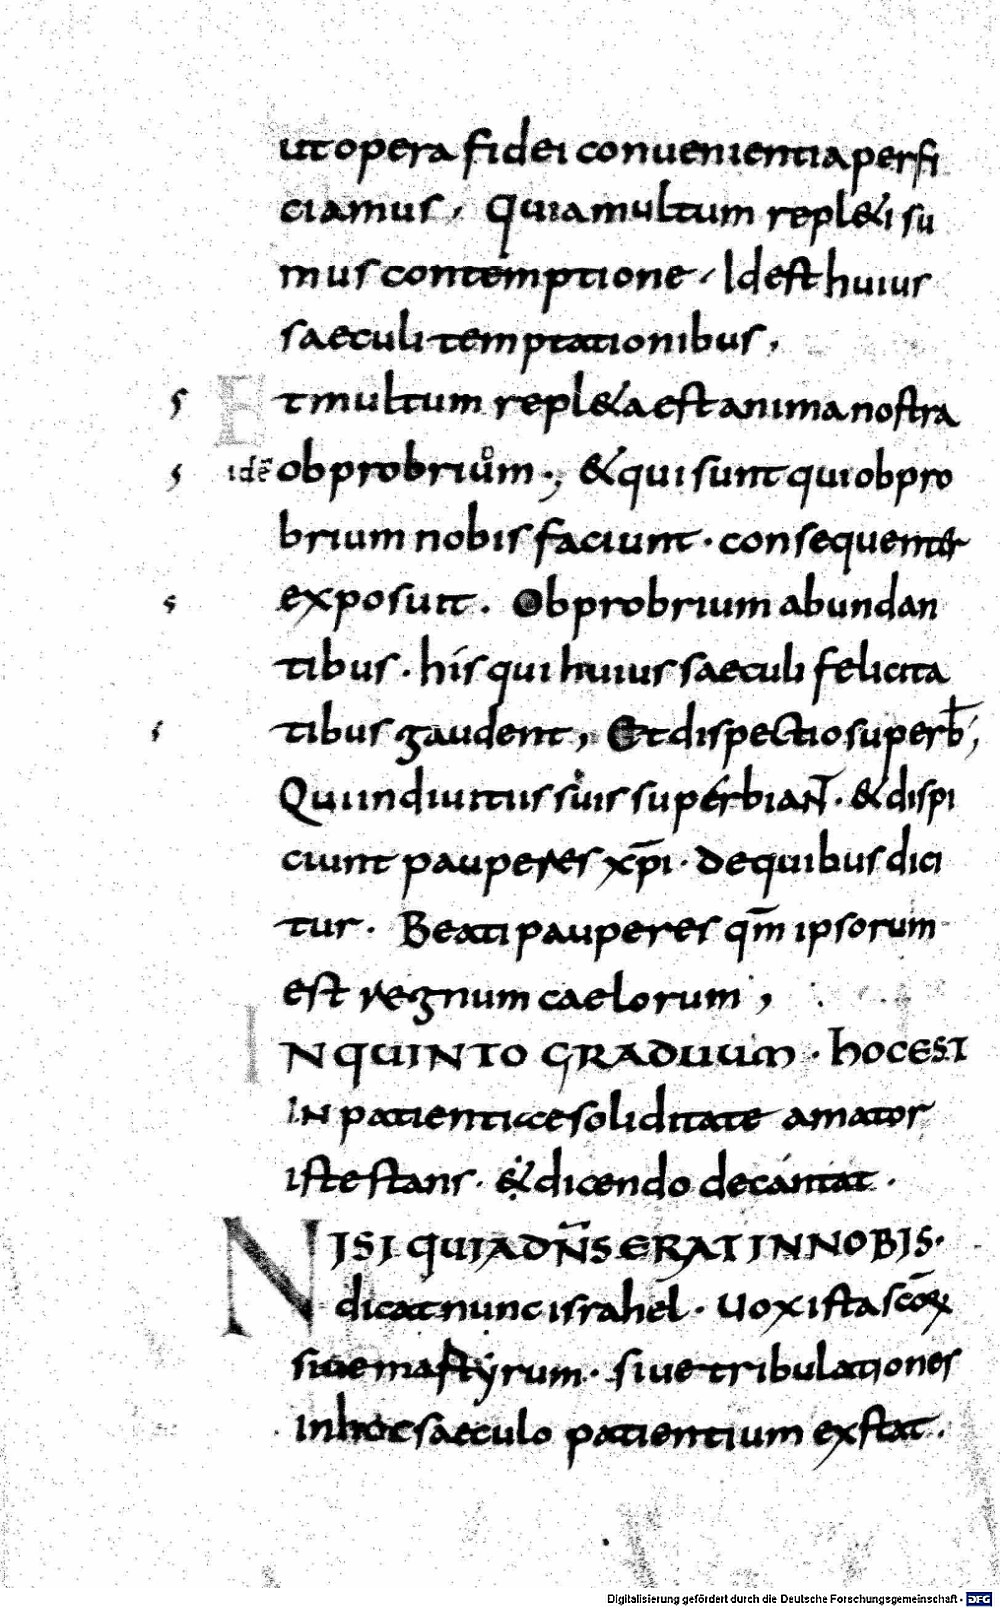 ut opera fidei convenientia perfi
ciamus, Quia multum repl&i su
mus contemptione, Id est huius
saeculi temptationibus,
s Et multum repl&a est anima nostra
s idē obprobriům ·, & qui sunt qui obpro
brium nobis faciunt · consequenter
s exposuit. Obprobrium abundan
tibus · his qui huius saeculi felicita
s tibus gaudent, Et dispectio superb̄;
Qui in diuitiis suis superbiaN̄ · & dispi
ciunt pauperes xp̄i · de quibus dici
tur. Beati pauperes qm̄ ipsorum
est regnum caelorum,
IN QUINTO GRADUUM · HOC EST
IN patientiae soliditate amator
iste stans · & dicendo decantat.
NISI QUIA DN̄S ERAT IN NOBIS·
dicat nunc israhel · Uox ista sc̄oꝝ
siue martyrum · siue tribulationes
in hoc saeculo patientium exstat.
Digitalisierung gefördert durch die Deutsche Forschungsgemeinschaft - DFG